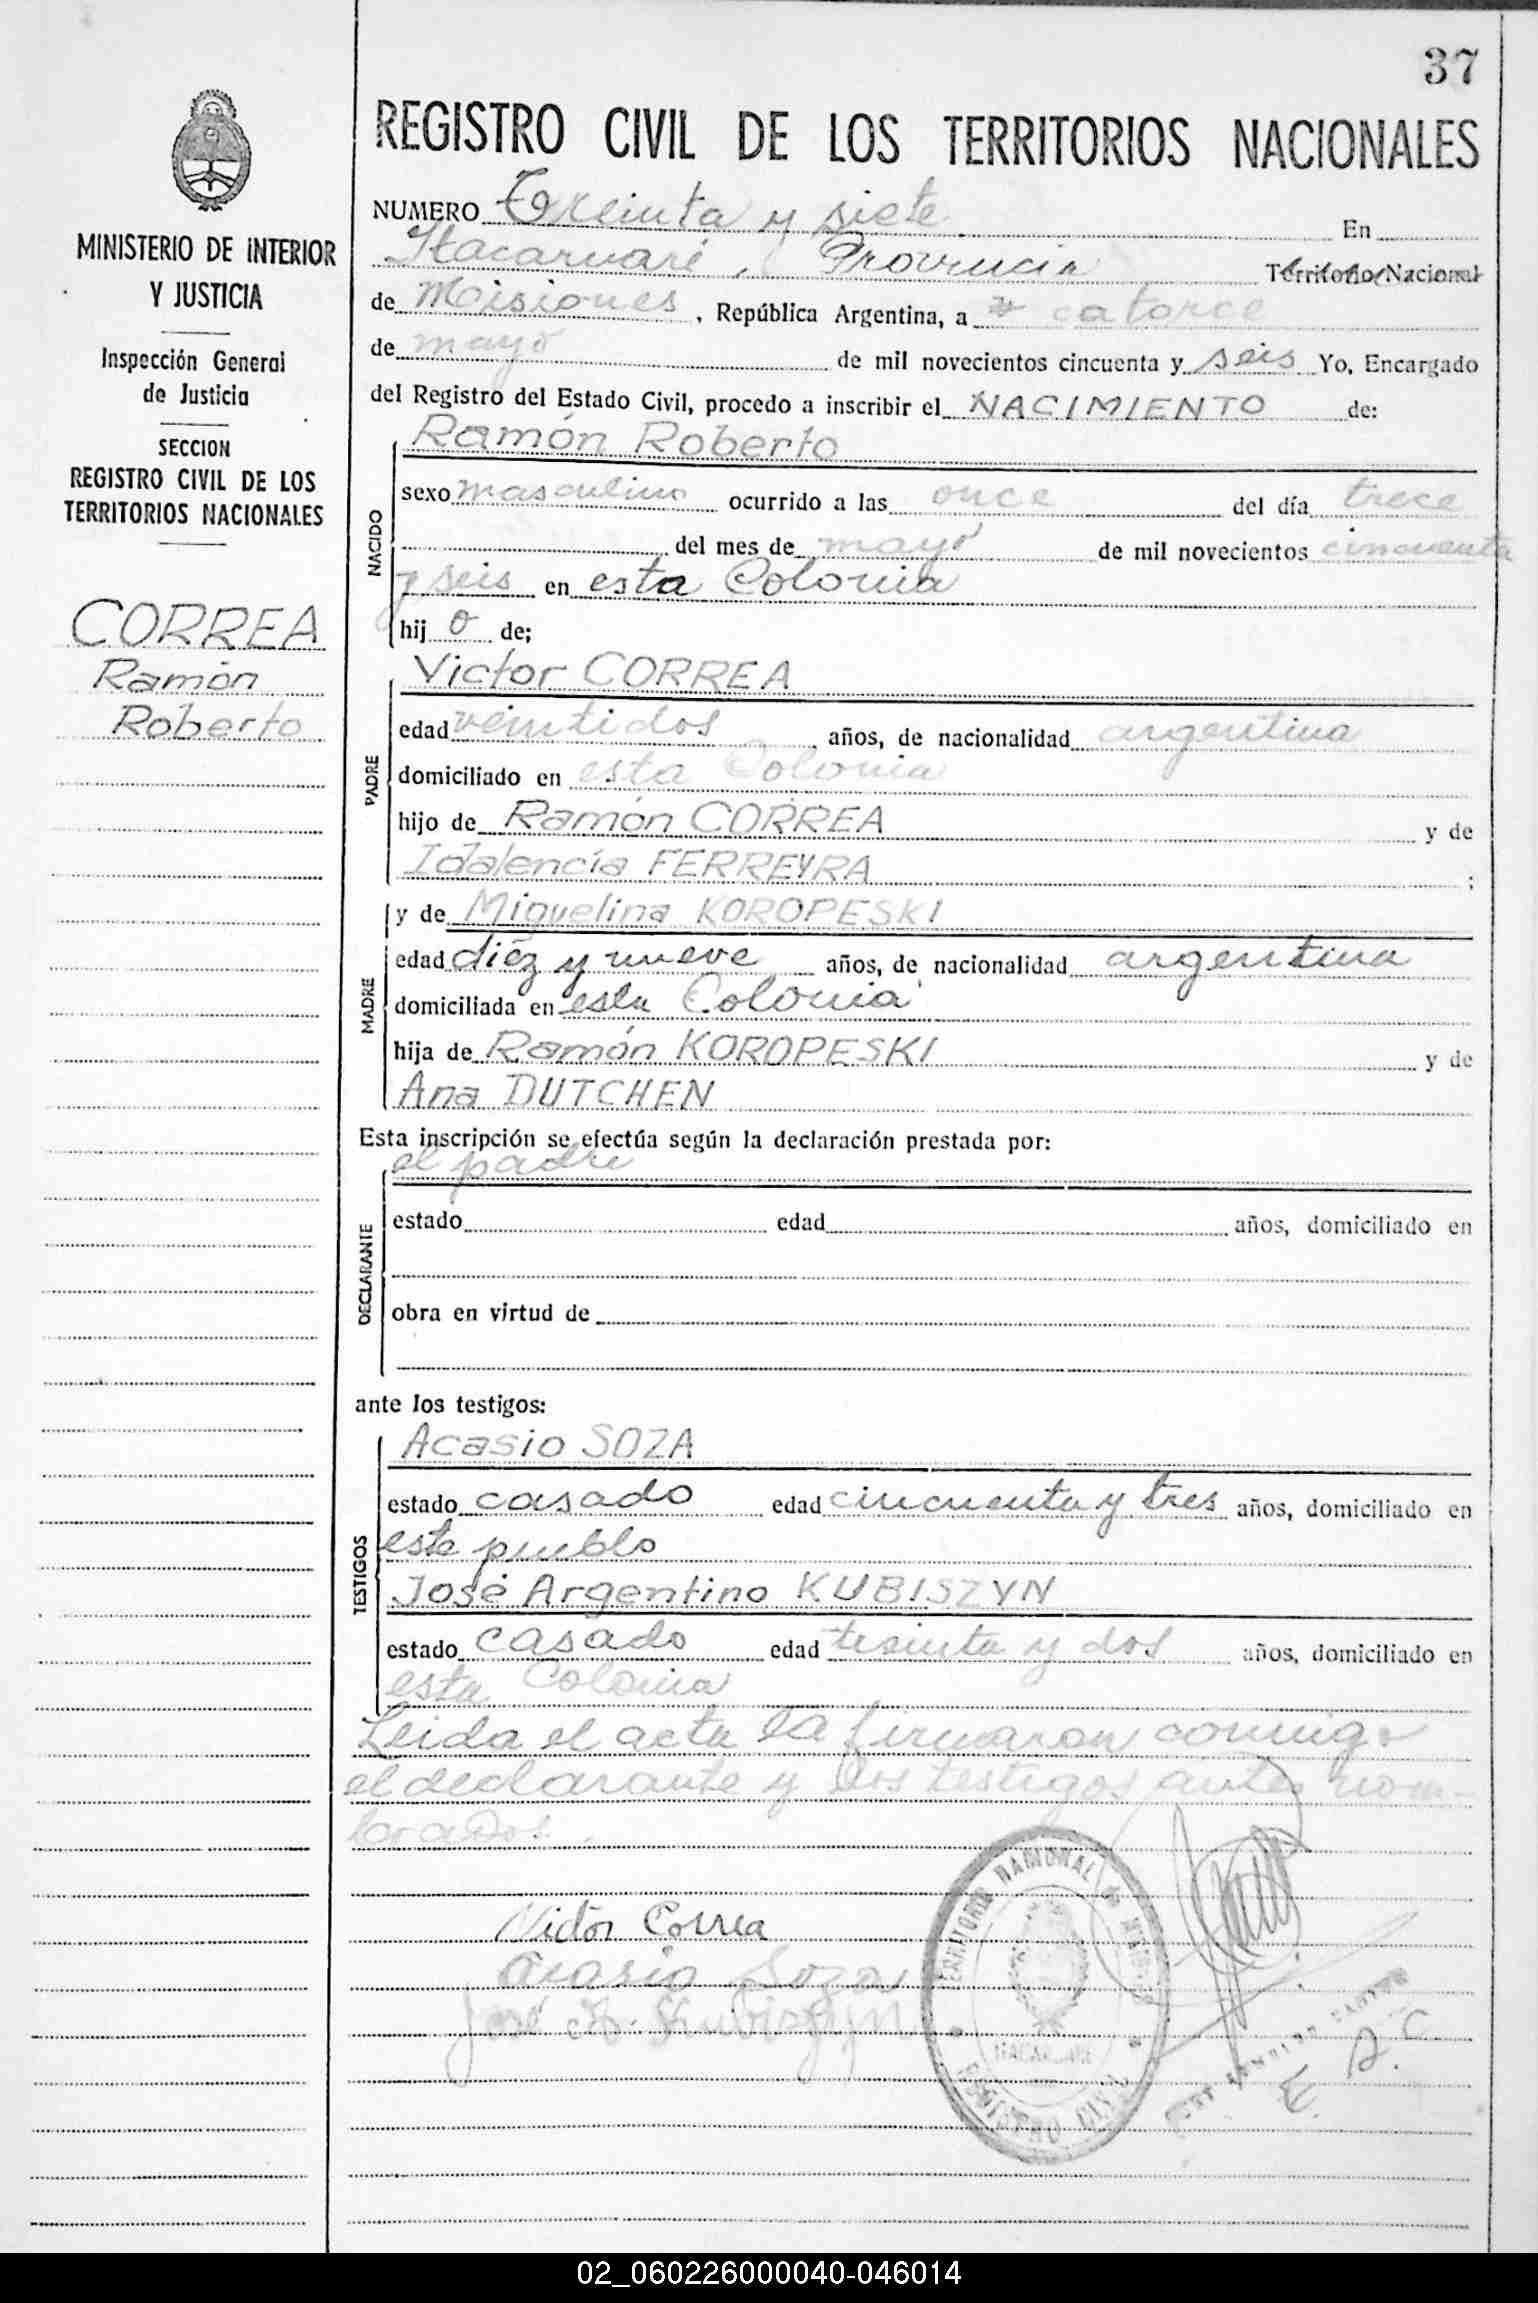 37
REGISTRO CIVIL DE LOS TERRITORIOS NACIONALES
MINISTERIO DE INTERIOR
Y JUSTICIA
Inspección General
de Justicia
SECCION
REGISTRO CIVIL DE LOS
TERRITORIOS NACIONALES
CORREA
Ramón
Roberto
NUMERO Treinta y siete En
Itacaruaré, Provincia Territorio Nacional
de Misiones, República Argentina, a catorce
de mayo de mil novecientos cincuenta y seis Yo, Encargado
del Registro del Estado Civil, procedo a inscribir el NACIMIENTO de:
NACIDO
Ramón Roberto
sexo masculino ocurrido a las once del día trece
del mes de mayo de mil novecientos cincuenta
y seis en esta Colonia
hij o de;
PADRE
Victor CORREA
edad veintidos años, de nacionalidad argentina
domiciliado en esta Colonia
hijo de Ramón CORREA y de
Idalencia FERREYRA ;
y de Miguelina KOROPESKI
MADRE
edad diéz y nueve años, de nacionalidad argentina
domiciliada en esta Colonia
hija de Ramón KOROPESKI y de
Ana DUTCHEN
Esta inscripción se efectúa según la declaración prestada por:
DECLARANTE
el padre
estado edad años, domiciliado en
obra en virtud de
ante los testigos:
TESTIGOS
Acasio SOZA
estado casado edad cincuenta y tres años, domiciliado en
este pueblo
José Argentino KUBISZYN
estado casado edad treinta y dos años, domiciliado en
esta Colonia
Leida el acta la firmaron conmigo
el declarante y los testigos antes nom-
brados.
Victor Correa
Acasio Soza
José A. Kubiszyn
TERRITORIO NACIONAL DE MISIONES
REGISTRO CIVIL
E. R. C.
02_060226000040-046014